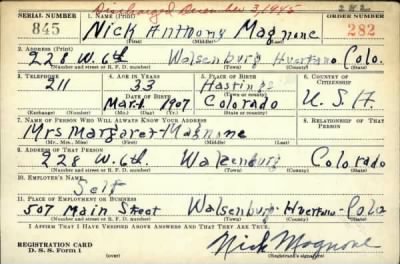 Discharged December 3, 1945
SERIAL NUMBER 1. NAME (Print) ORDER NUMBER
845 Nick Anthony Magnone 282
(First) (Middle) (Last)
2. ADDRESS (Print)
228 W. 6th Walsenburg Huerfano Colo.
(Number and street or R. F. D. number) (Town) (County) (State)
3. TELEPHONE 4. AGE IN YEARS 5. PLACE OF BIRTH 6. COUNTRY OF CITIZENSHIP
211 33 Hastings
DATE OF BIRTH (Town or county)
Mar. 1 1907 Colorado U. S. A.
(Exchange) (Number) (Mo.) (Day) (Yr.) (State or country)
7. NAME OF PERSON WHO WILL ALWAYS KNOW YOUR ADDRESS 8. RELATIONSHIP OF THAT PERSON
Mrs Margaret Magnone
(Mr., Mrs., Miss) (First) (Middle) (Last)
9. ADDRESS OF THAT PERSON
228 W. 6th. Walsenburg Colorado
(Number and street or R. F. D. number) (Town) (County) (State)
10. EMPLOYER'S NAME
Self
11. PLACE OF EMPLOYMENT OR BUSINESS
507 Main Street Walsenburg Huerfano Colo
(Number and street or R. F. D. number) (Town) (County) (State)
I AFFIRM THAT I HAVE VERIFIED ABOVE ANSWERS AND THAT THEY ARE TRUE.
REGISTRATION CARD
D. S. S. Form 1
Nick Magnone
(Registrant's signature)